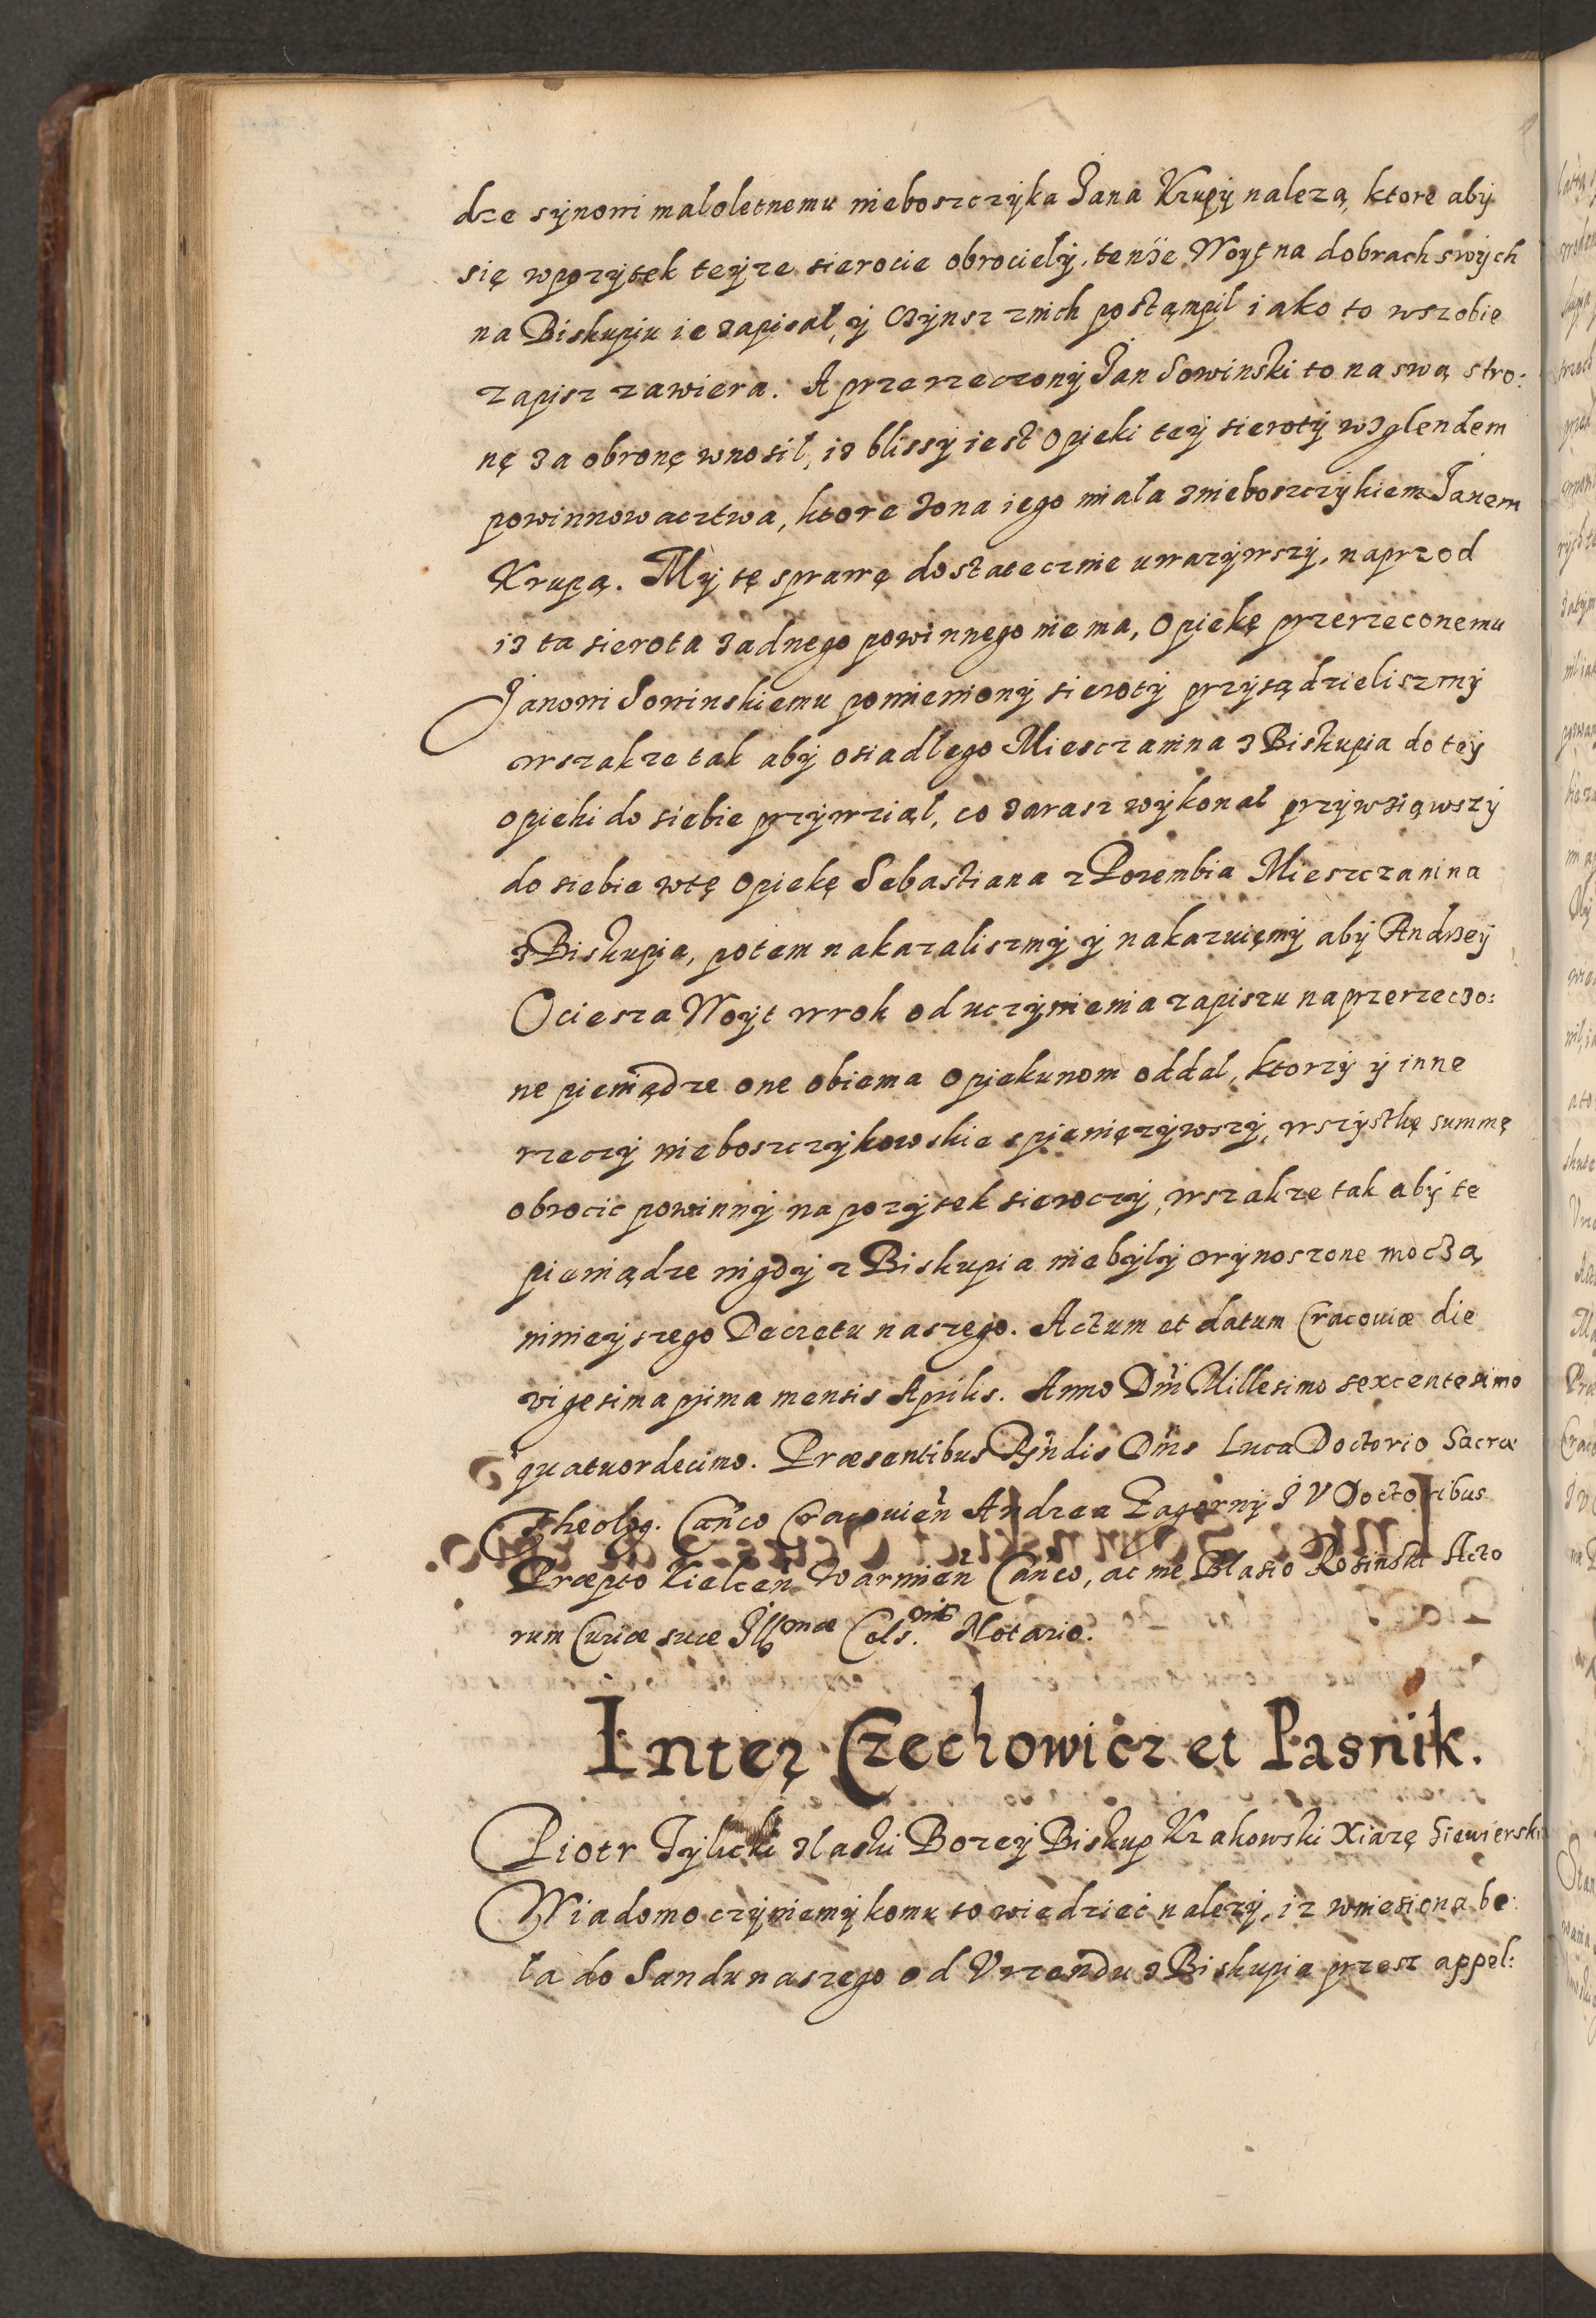 dze sÿnowi maloletnemu nieboszczÿka Jana Krupÿ nalezą, ktore abÿ
się wpozÿtek teÿze sierocie obrocielÿ, tenże Woÿt na dobrach swÿch
na Biskupiu ie zapisał, ÿ Czÿnsz znich postąmpil iako to wszobie
zapisz zawiera. A przerzeczonÿ Jan Sowinski to na swą stro:
nę za obronę wnosił, iz blissÿ iest Opieki teÿ sierotÿ wzglendem
powinnowacztwa, ktore zona iego miała znieboszczÿkiem Janem
Krupą. Mÿ tę sprawę dostatecznie uwazÿwszÿ, naprzod
iz ta sierota zadnego powinnego niema, Opiekę przerzeconemu
Janowi Sowinskiemu pomienionÿ sierotÿ przÿsądzieliszmÿ
wszakze tak abÿ osiadłego Miesczanina z Biskupia do teÿ
opieki do siebie przÿwziął, co zarasz wÿkonał przÿwziąwszÿ
do siebie wtę opiekę Sebastiana z Porembia Mieszczanina
z Biskupia, potem nakazaliszmÿ ÿ nakazuięmÿ abÿ Andrzeÿ
Ociesza Woÿt wrok od uczÿnienia zapiszu na przerzeczo:
ne pieniądze one obiema opiekunom oddał, ktorzÿ ÿ inne
rzeczÿ nieboszczÿkowskie spieniężÿwszÿ, wszÿstkę summę
obrocic powinnÿ na pozÿtek sieroczÿ, wszakze tak abÿ te
pieniądze nigdÿ z Biskupia niebÿlÿ wÿnoszone moczą
ninieÿszego Decretu naszego. Actum et datum Cracoviæ die
vigesima prima mensis Aprilis. Anno Dni Millesimo sexcentesimo
quatuordecimo. Præsentibus Rndis Dnis Luca Doctorio Sacræ
Theolog. Canco Cracovien Andrea Zagornÿ J V Doctoribus
Præpto Kielcen Warmien Canco, ac me Blasio Rosinski Acto
rum Curiæ suæ Illmæ Cels.nis Notario.
Inter Czechowicz et Pasnik.
Piotr Tÿlicki złaski Bozeÿ Biskup Krakowski Xiazę Siewierski
Wiadomo czÿniemÿ komu to wiedzieć nalezÿ, iz wniesiona be:
ła do Sandu naszego od Vrzendu z Biskupia przesz appel: